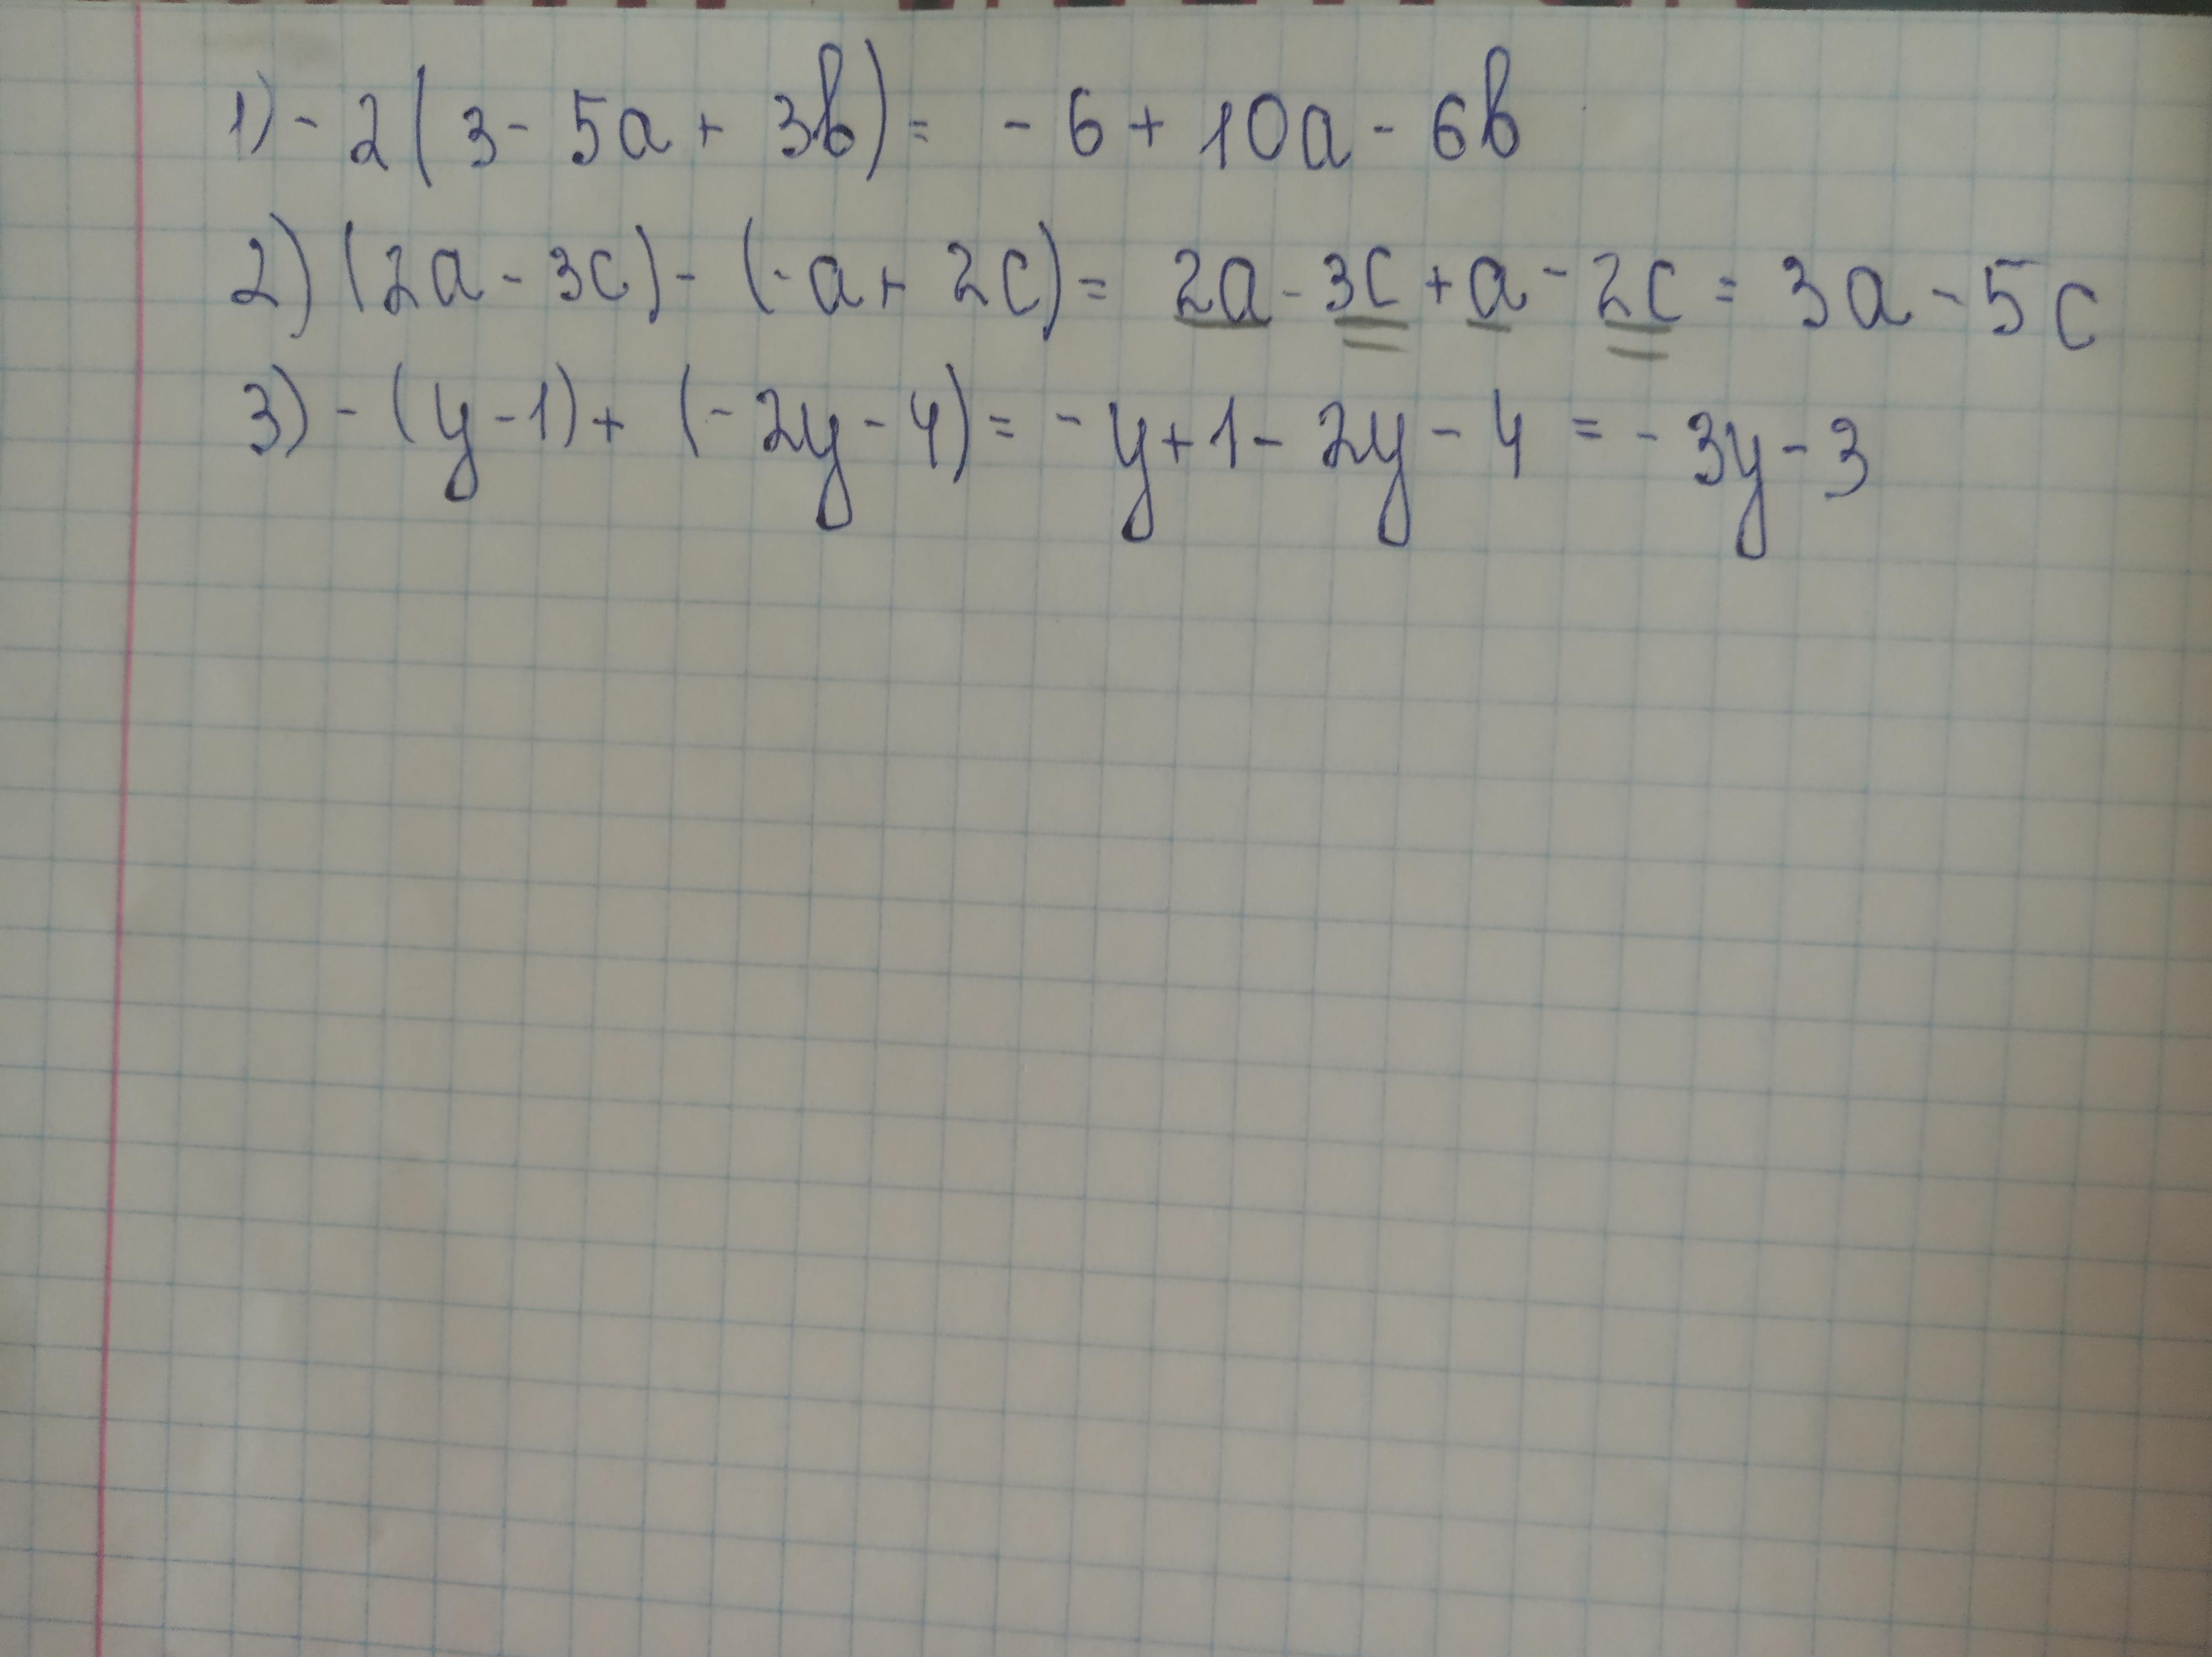 1) - 2(3 - 5a + 3b) = - 6 + 10a - 6b
2) (2a - 3c) - (-a + 2c) = 2a - 3c + a - 2c = 3a - 5c
3) - (y - 1) + (- 2y - 4) = - y + 1 - 2y - 4 = - 3y - 3